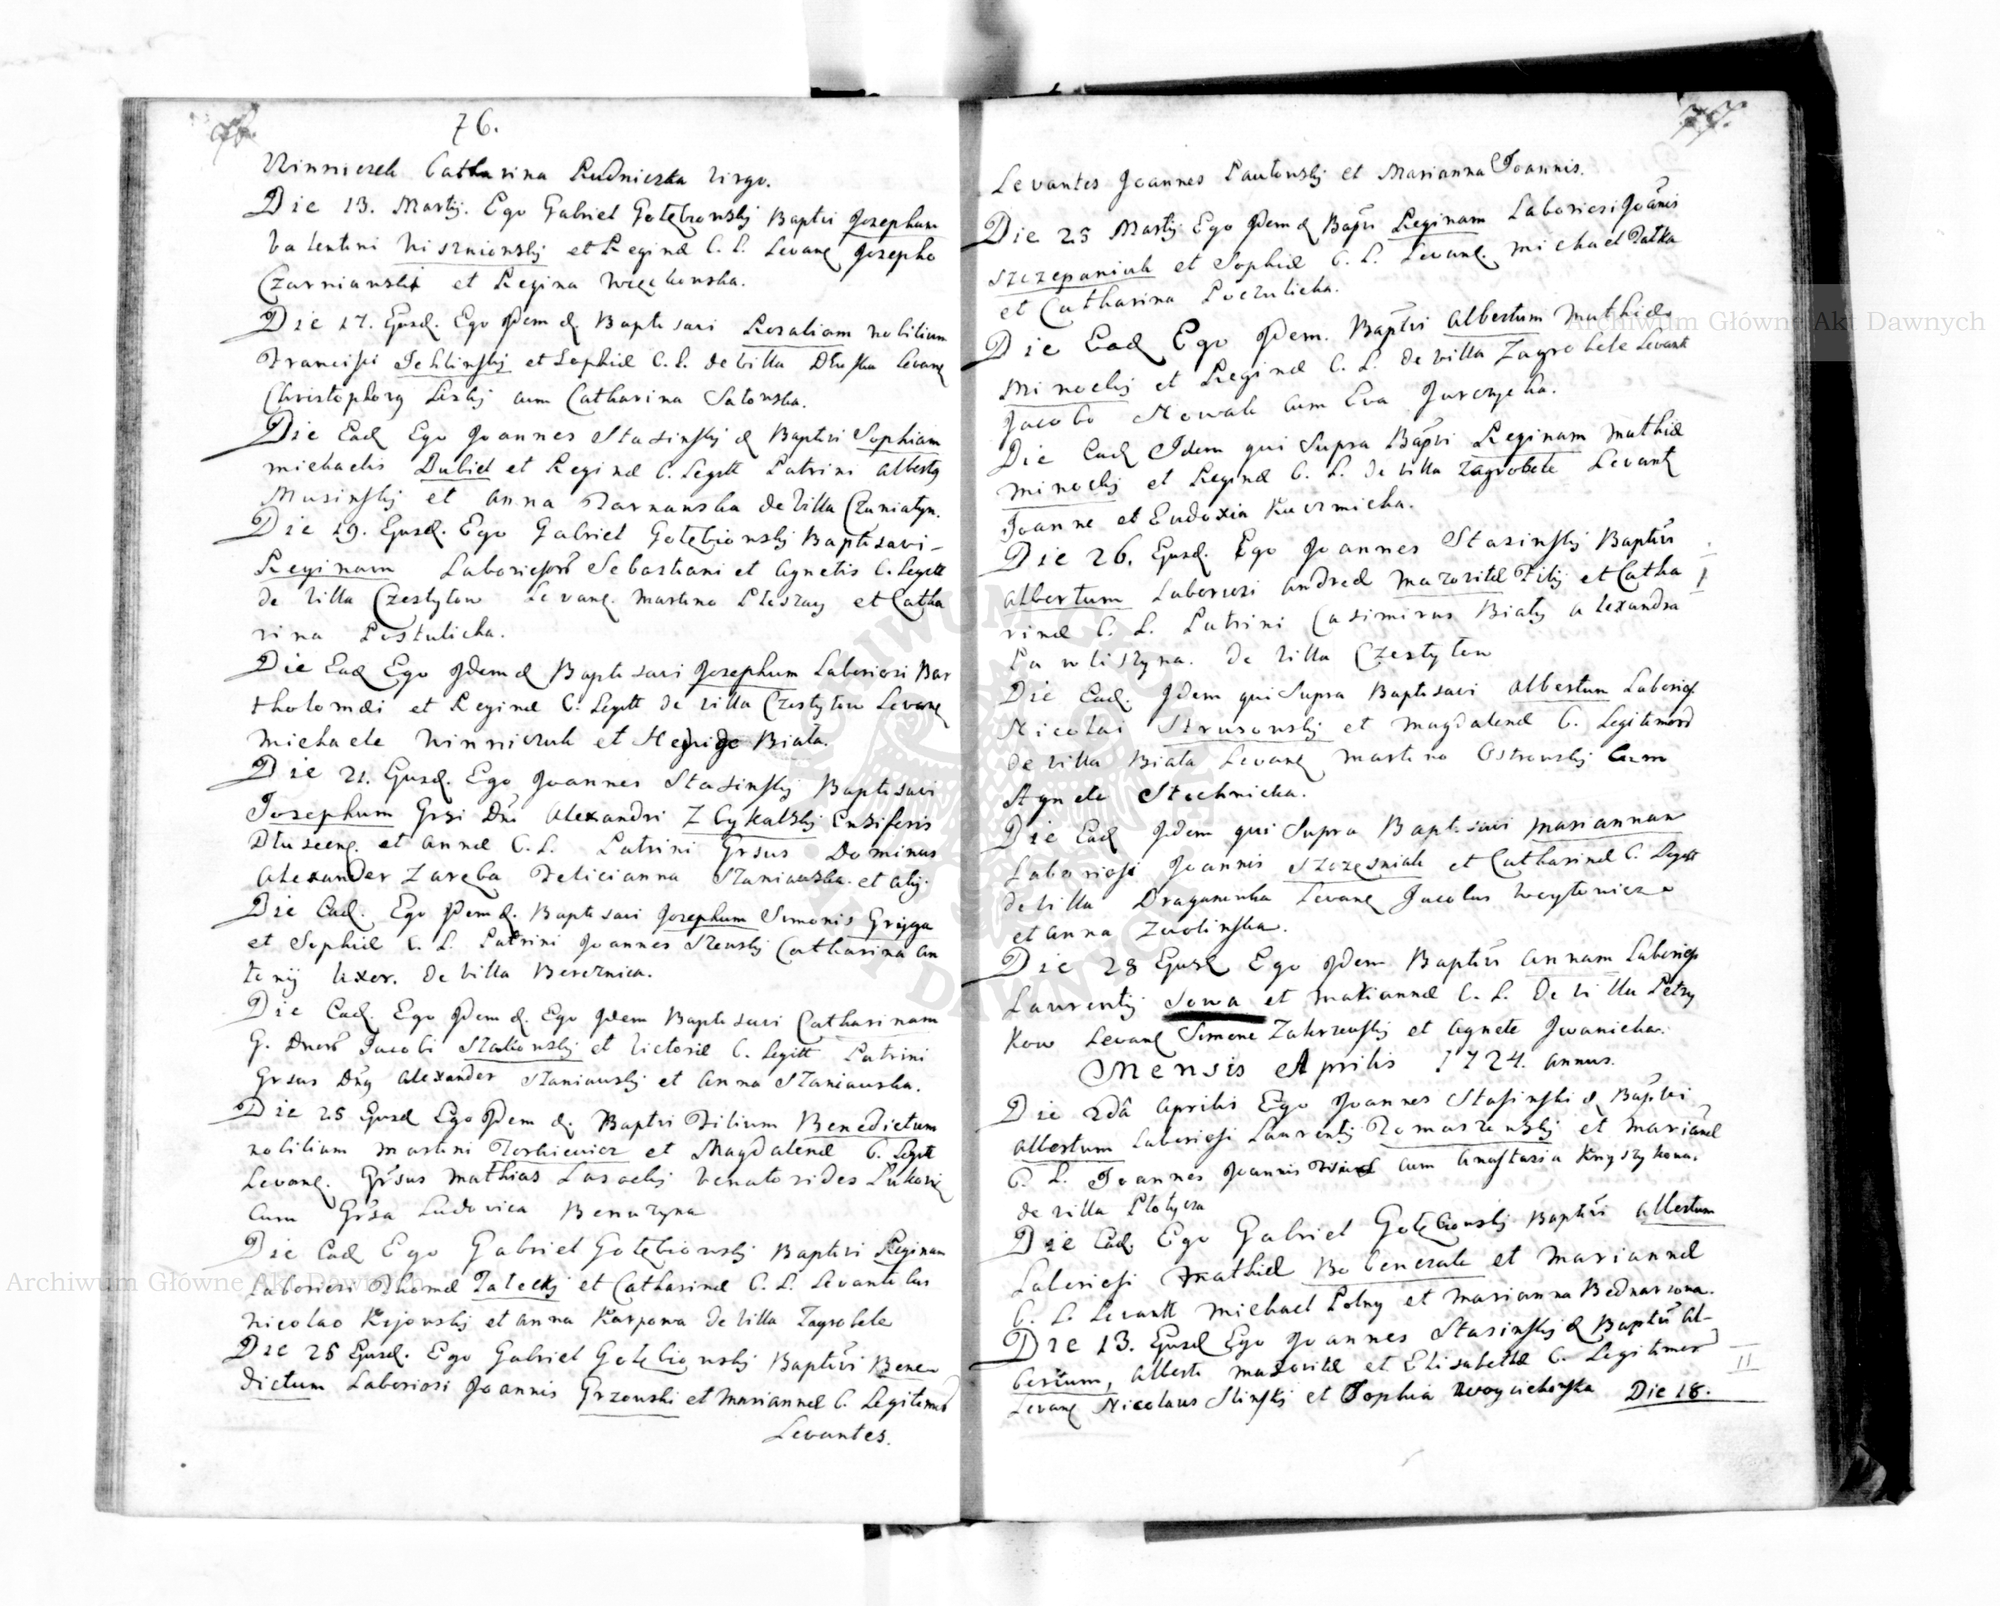 76.
Winniczek Catharina Rudniczka Virgo.
Die 13. Martij. Ego Gabriel Gołębiowskij Baptivi Josephum
Valentini Wiszniowskij et Reginæ C. L. Levane Josepho
Czarniawski et Regina Więckowska.
Die 17. Ejusd. Ego Idem d. Baptisavi Rosaliam nobilium
Francisci et Sophiæ C. L. de Villa Dłuska Levane
Christophorg Liskij cum Catharina Satowska.
Die Ead Ego Joannes Stasinskij d Baptivi Sophiam
Michaelis Dubiel et Reginæ C. Legitt Patrini Albertg
Musinskij et Anna Tarnawska de Villa Czuniatyn.
Die 19. Ejusd. Ego Gabriel Gołębiowskij Baptisavi-
Reginam Sebastiani et Agnetis C. Legitt
de Villa Czestyłow Levane. Martino Pleszay et Catha
rina Postulicka.
Die Ead Ego Idem d Baptisavi Josephum Laboriosi Bar
tholomæi et Reginæ C. Legitt de Villa Czestyłow Levane
Michaele Winniczuk et Biała.
Die 21. Ejusd. Ego Joannes Stasinskij Baptisavi
Josephum Grsi Dni Alexandri Ensiferis
et Annæ C. L. Patrini Grsus Dominus
Alexander Zaręba Felicianna Staniawska. et alij.
Die Ead. Ego Idem d. Baptisavi Josephum Simonis Gryga
et Sophiæ C. L. Patrini Joannes Catharina An
tonij Uxor. de Villa Bereznica.
Die Ead. Ego Idem d. Ego Idem Baptisavi Catharinam
G. Dnorū Jacobi et Victoriæ C. Legitt Patrini
Grsus Dng Alexander Staniawskij et Anna Staniawska.
Die 25 Ejusd Ego Idem d. Baptivi Filium Benedictum
nobilium Martini et Magdalenæ C. Legitt
Levane. Grsus Mathias Venatorides
cum Grsa Ludovica Benuzyna
Die Ead Ego Gabriel Gołębiowskij Baptivi Reginam
Laboriosi Thomæ et Catharinæ C. L. Levantibus
Nicolao Kijowskij et Anna Karpowa de Villa Zagrobele
Die 25 Ejusd. Ego Gabriel Gołębiowskij Baptivi Bene-
dictum Laboriosi Joannis Grzowski et Mariannæ C. Legitimor
Levantes.
77.
Levantes Joannes Pawłowskij et Marianna Joannis.
Die 25 Martij Ego Idem d Baptvi Reginam Laboriosi Joānis
Szczepaniuk et Sophiæ C. L. Levane. Michael Fatka
et Catharina Poczulicka.
Die Ead Ego Idem. Baptivi Albertum Mathiæ
Minockij et Reginæ C. L. de Villa Zagrobele Levantt
Jacobo Nowak cum Eva Jurczycka.
Die Ead Idem qui Supra Baptvi Reginam Mathiæ
Minockij et Reginæ C. L. de Villa Zagrobele Levantt
Joanne et Eudoxia Kuczmicka.
Die 26. Ejusd. Ego Joannes Stasinskij Baptivi
Albertum Laboriosi Andreæ Mazovitæ Filij et Catha
I
rinæ C. L. Patrini Casimirus Biały Alexandra
Pawliszyna. de Villa Czestyłow
Die Ead. Idem qui Supra Baptisavi Albertum
Nicolai Strusowskij et Magdalenæ C. Legitimord
de Villa Biała Levane Martino Ostrowskij cum
Agnete Stachnicka.
Die Ead Idem qui Supra Baptisavi Mariannam
Laboriosi Joannis Szczęsniak et Catharinæ C. Legitt
de Villa Draganuwka Levane Jacobus Woytowicz
et Anna Zwolinska.
Die 28 Ejusd Ego Idem Baptivi Annam
Laurentij Sowa et Mariannæ C. L. de Villa Petry
kow Levane Simone Zakrzewskij et Agnete Iwanicka.
Mensis Aprilis 1724. annus.
Die 2dâ Aprilis Ego Joannes Stasinski d Baptvi
Albertum Laboriosi Laurentij Romaszewskij et Mariānæ
C. L. Joannes Joannis cum Anastasia Krzyszykowa.
de Villa Płotycza
Die Ead. Ego Gabriel Gołębiowskij Baptivi Albertum
Laboriosi Mathiæ et Mariannæ
C. L. Levantt Michael Polny et Marianna Bednarzowa.
Die 13. Ejusd Ego Joannes Stasinskij d Baptivi Al-
bertum, Alberti Mazovitæ et Elisabethæ C. Legitimor
II
Levane Nicolaus Slinskij et Sophia Woyciechowska Die 18.
Archiwum Główne Akt Dawnych
Archiwum Główne Akt Dawnych
ARCHIWUM GŁÓWNE AKT DAWNYCH